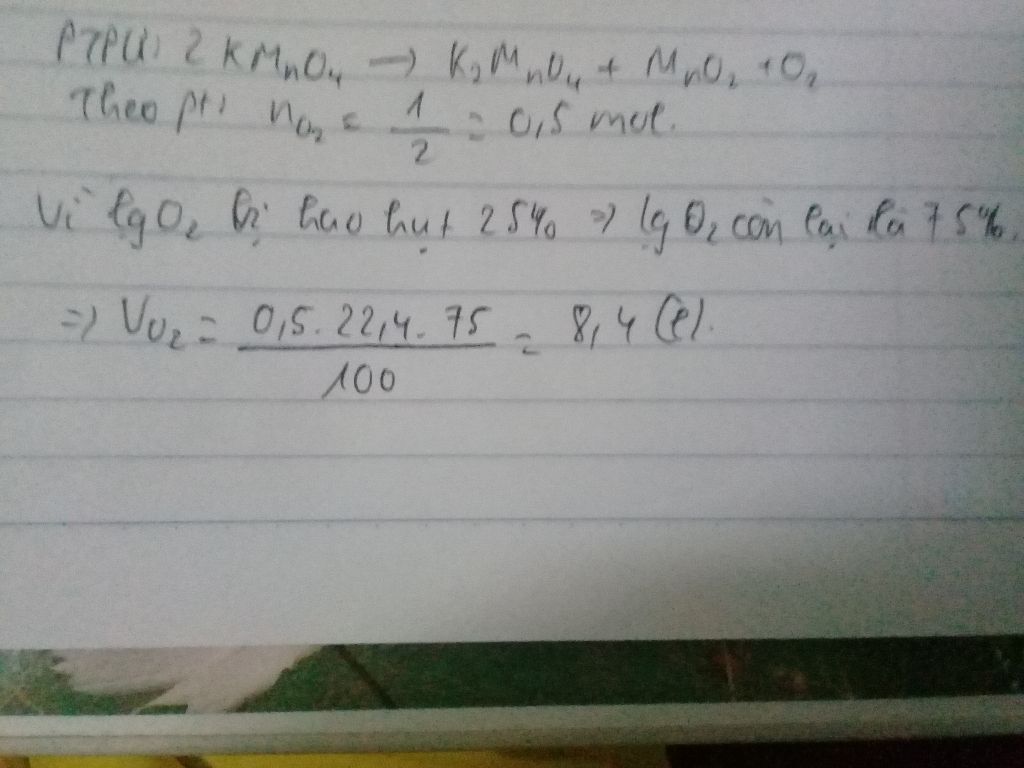 PTPƯ: 2 KMnO₄ → K₂MnO₄ + MnO₂ + O₂
Theo pt: nO₂ = 1/2 = 0,5 mol.
Vì lg O₂ bị hao hụt 25% => lg O₂ còn lại là 75%.
=> VO₂ = 0,5. 22,4. 75 / 100 = 8,4 (l).